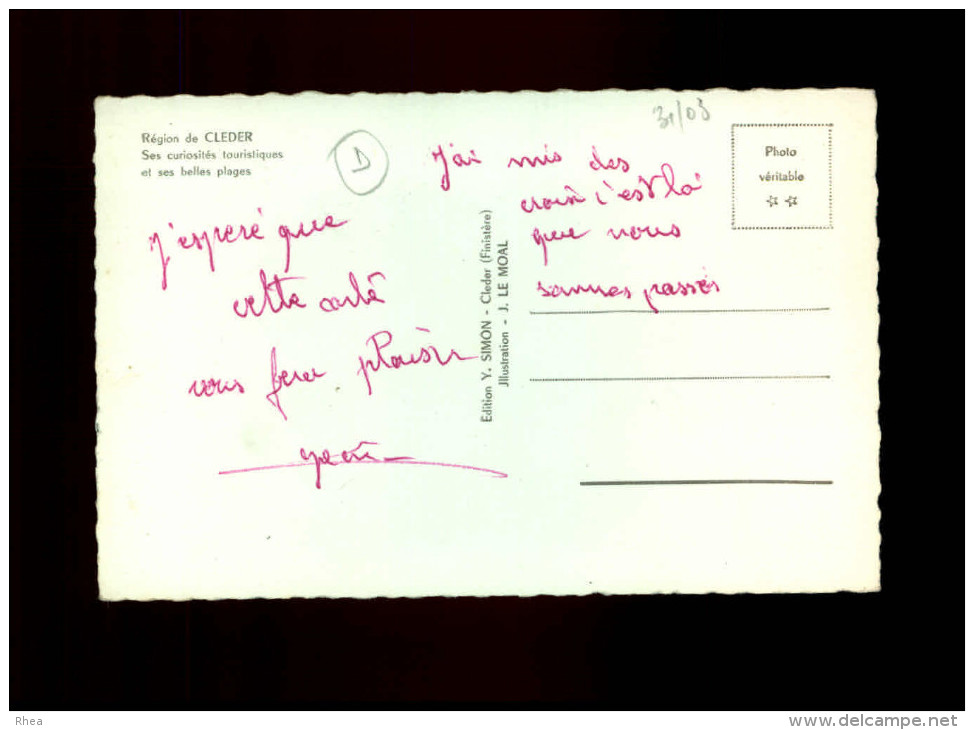 Région de CLEDER
Ses curiosités touristiques
et ses belles plages
D
31/03
Photo
véritable
J'ai mis des
croix c'est là
que nous
sommes passés
j'esperé que
cette carte
vous fera plaisir
Edition Y. SIMON - Cleder (Finistère)
Jllustration - J. LE MOAL
Rhea
www.delcampe.net